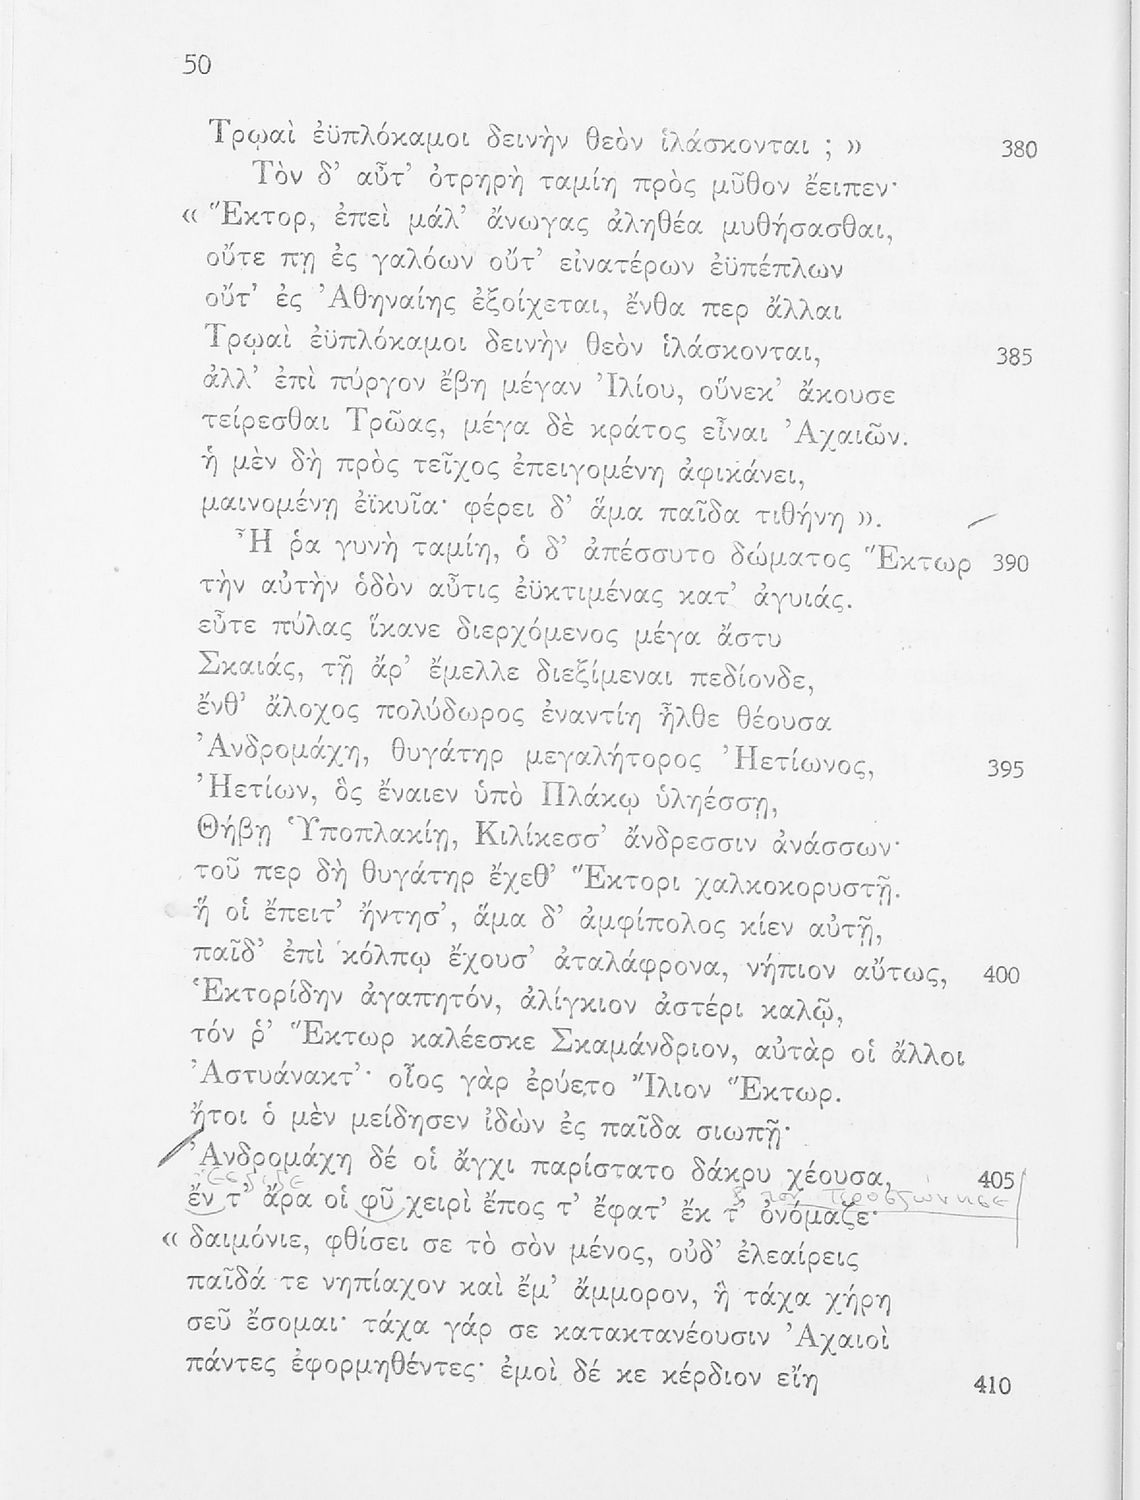 50
Τρῳαὶ ἐϋπλόκαμοι δεινὴν θεὸν ἱλάσκονται ; » 380
Τὸν δ' αὖτ' ὀτρηρὴ ταμίη πρὸς μῦθον ἔειπεν·
« Ἕκτορ, ἐπεὶ μάλ' ἄνωγας ἀληθέα μυθήσασθαι,
οὔτε πῃ ἐς γαλόων οὔτ' εἰνατέρων ἐϋπέπλων
οὔτ' ἐς Ἀθηναίης ἐξοίχεται, ἔνθα περ ἄλλαι
Τρῳαὶ ἐϋπλόκαμοι δεινὴν θεὸν ἱλάσκονται, 385
ἀλλ' ἐπὶ πύργον ἔβη μέγαν Ἰλίου, οὕνεκ' ἄκουσε
τείρεσθαι Τρῶας, μέγα δὲ κράτος εἶναι Ἀχαιῶν.
ἡ μὲν δὴ πρὸς τεῖχος ἐπειγομένη ἀφικάνει,
μαινομένῃ ἐϊκυῖα· φέρει δ' ἅμα παῖδα τιθήνη ».
Ἦ ῥα γυνὴ ταμίη, ὁ δ' ἀπέσσυτο δώματος Ἕκτωρ 390
τὴν αὐτὴν ὁδὸν αὖτις ἐϋκτιμένας κατ' ἀγυιάς.
εὖτε πύλας ἵκανε διερχόμενος μέγα ἄστυ
Σκαιάς, τῇ ἄρ' ἔμελλε διεξίμεναι πεδίονδε,
ἔνθ' ἄλοχος πολύδωρος ἐναντίη ἦλθε θέουσα
Ἀνδρομάχη, θυγάτηρ μεγαλήτορος Ἠετίωνος, 395
Ἠετίων, ὃς ἔναιεν ὑπὸ Πλάκῳ ὑληέσσῃ,
Θήβῃ Ὑποπλακίῃ, Κιλίκεσσ' ἄνδρεσσιν ἀνάσσων·
τοῦ περ δὴ θυγάτηρ ἔχεθ' Ἕκτορι χαλκοκορυστῇ.
ἥ οἱ ἔπειτ' ἤντησ', ἅμα δ' ἀμφίπολος κίεν αὐτῇ,
παῖδ' ἐπὶ κόλπῳ ἔχουσ' ἀταλάφρονα, νήπιον αὔτως, 400
Ἑκτορίδην ἀγαπητόν, ἀλίγκιον ἀστέρι καλῷ,
τόν ῥ' Ἕκτωρ καλέεσκε Σκαμάνδριον, αὐτὰρ οἱ ἄλλοι
Ἀστυάνακτ'· οἶος γὰρ ἐρύετο Ἴλιον Ἕκτωρ.
ἤτοι ὁ μὲν μείδησεν ἰδὼν ἐς παῖδα σιωπῇ·
Ἀνδρομάχη δέ οἱ ἄγχι παρίστατο δάκρυ χέουσα, 405
ἔν τ' ἄρα οἱ φῦ χειρὶ ἔπος τ' ἔφατ' ἔκ τ' ὀνόμαζε·
« δαιμόνιε, φθίσει σε τὸ σὸν μένος, οὐδ' ἐλεαίρεις
παῖδά τε νηπίαχον καὶ ἔμ' ἄμμορον, ἣ τάχα χήρη
σεῦ ἔσομαι· τάχα γάρ σε κατακτανέουσιν Ἀχαιοὶ
πάντες ἐφορμηθέντες· ἐμοὶ δέ κε κέρδιον εἴη 410